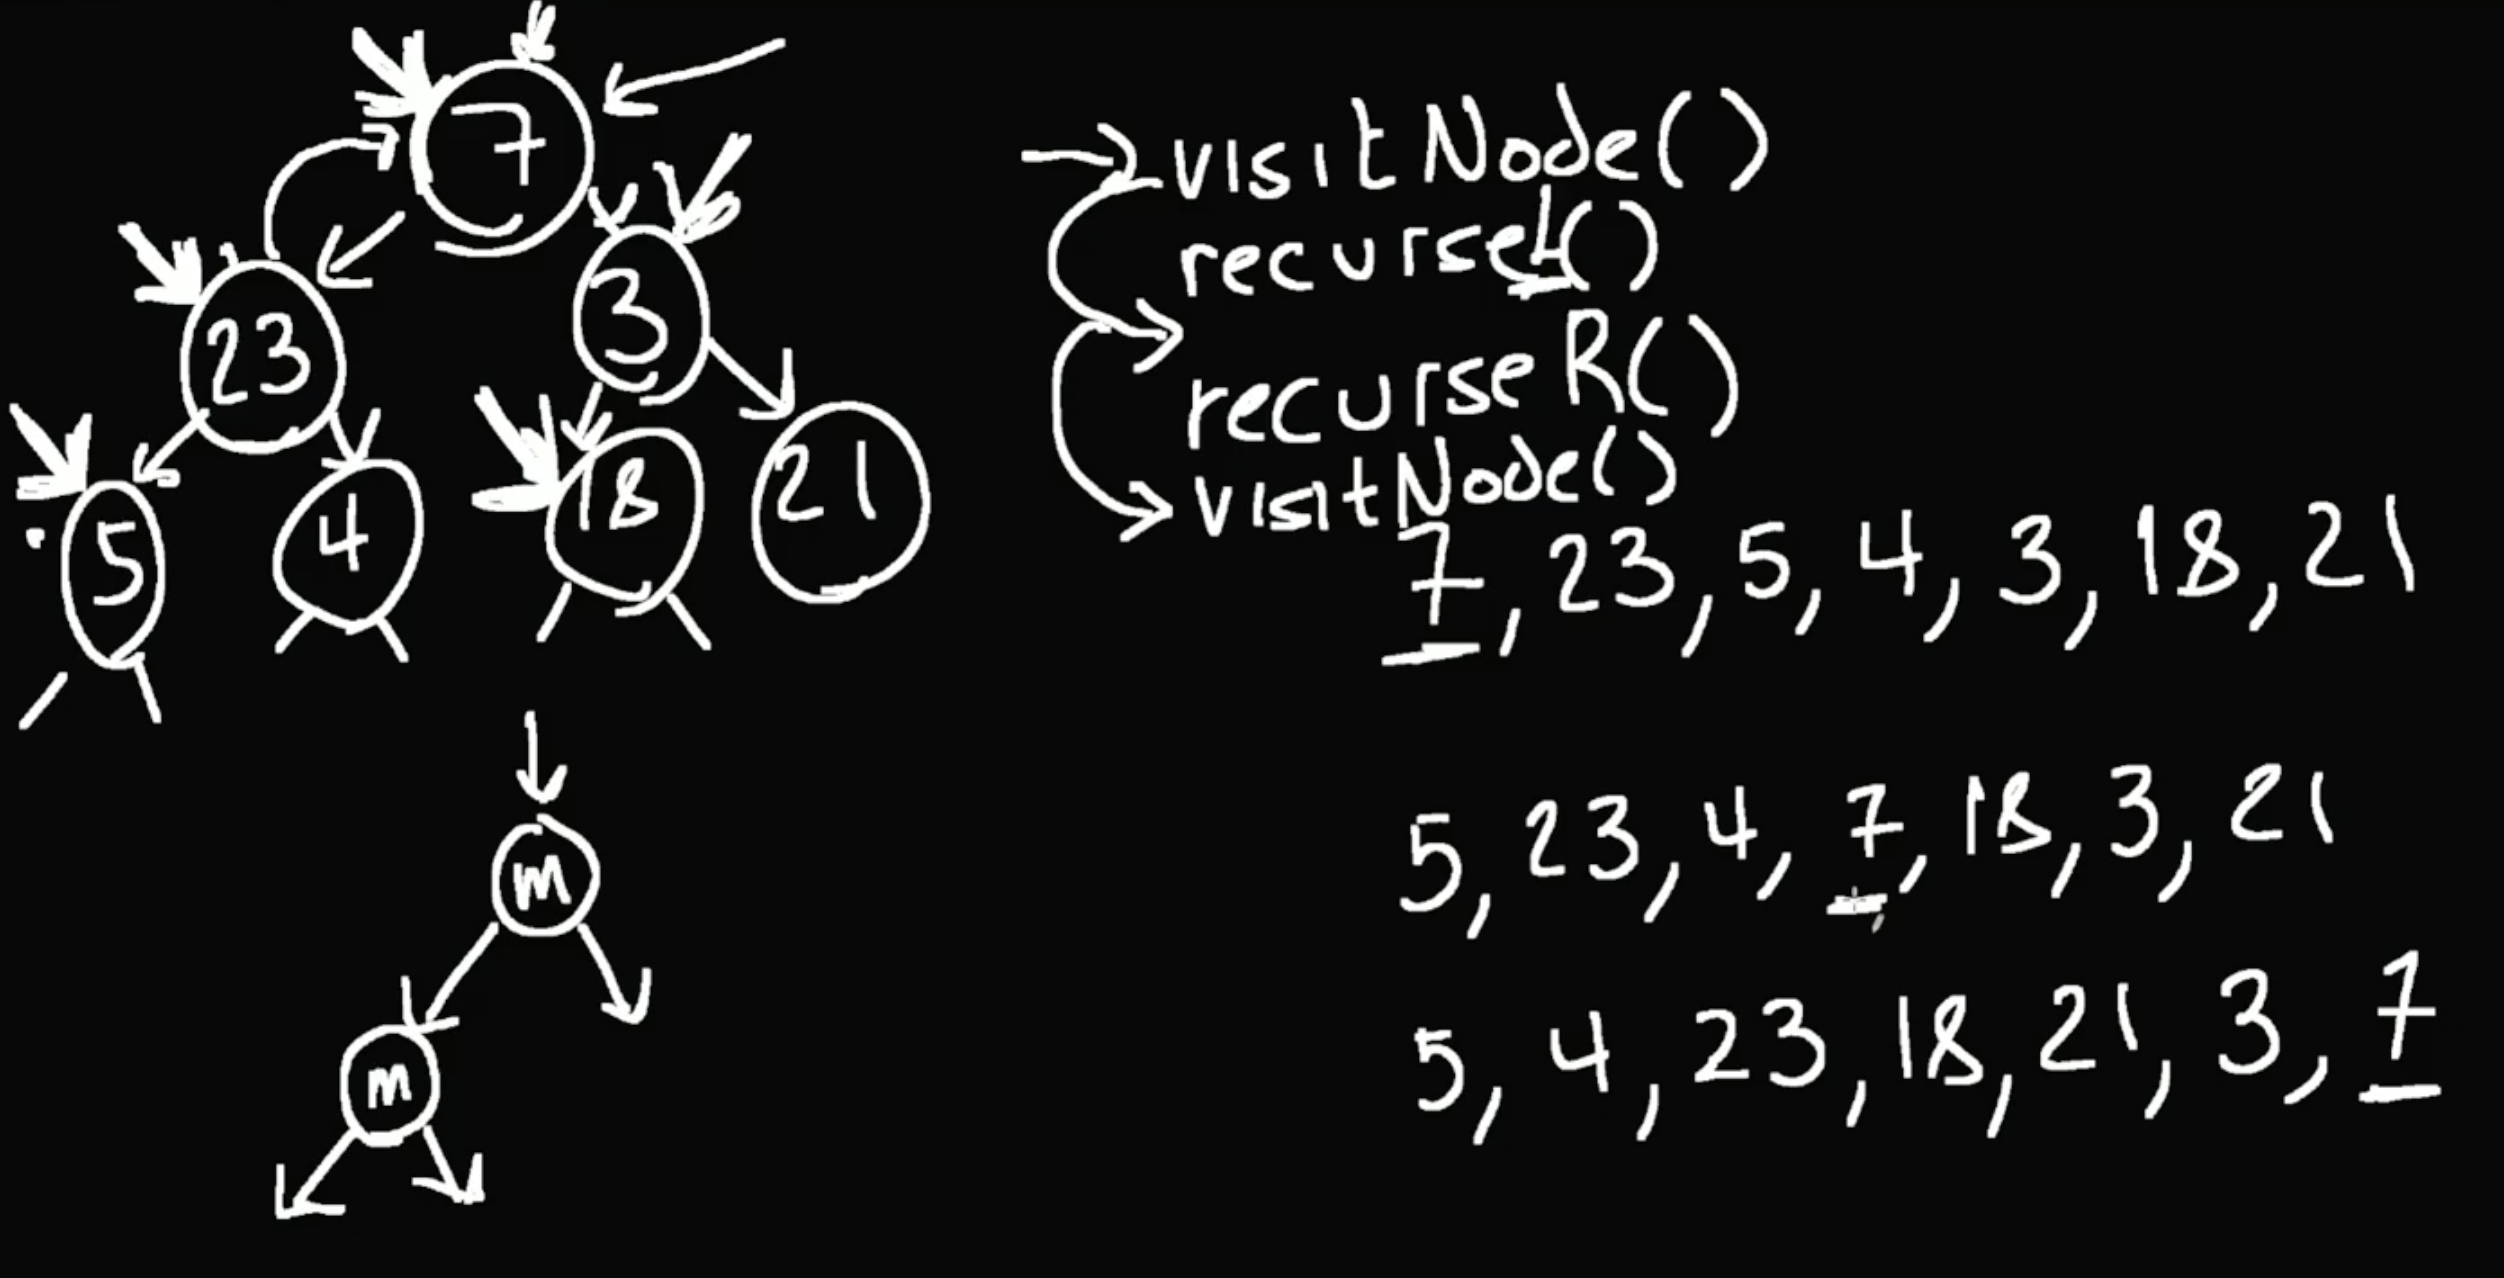 7
23
3
5
4
18
21
m
m
visitNode()
recurseL()
recurseR()
visitNode()
7, 23, 5, 4, 3, 18, 21
5, 23, 4, 7, 18, 3, 21
5, 4, 23, 18, 21, 3, 7